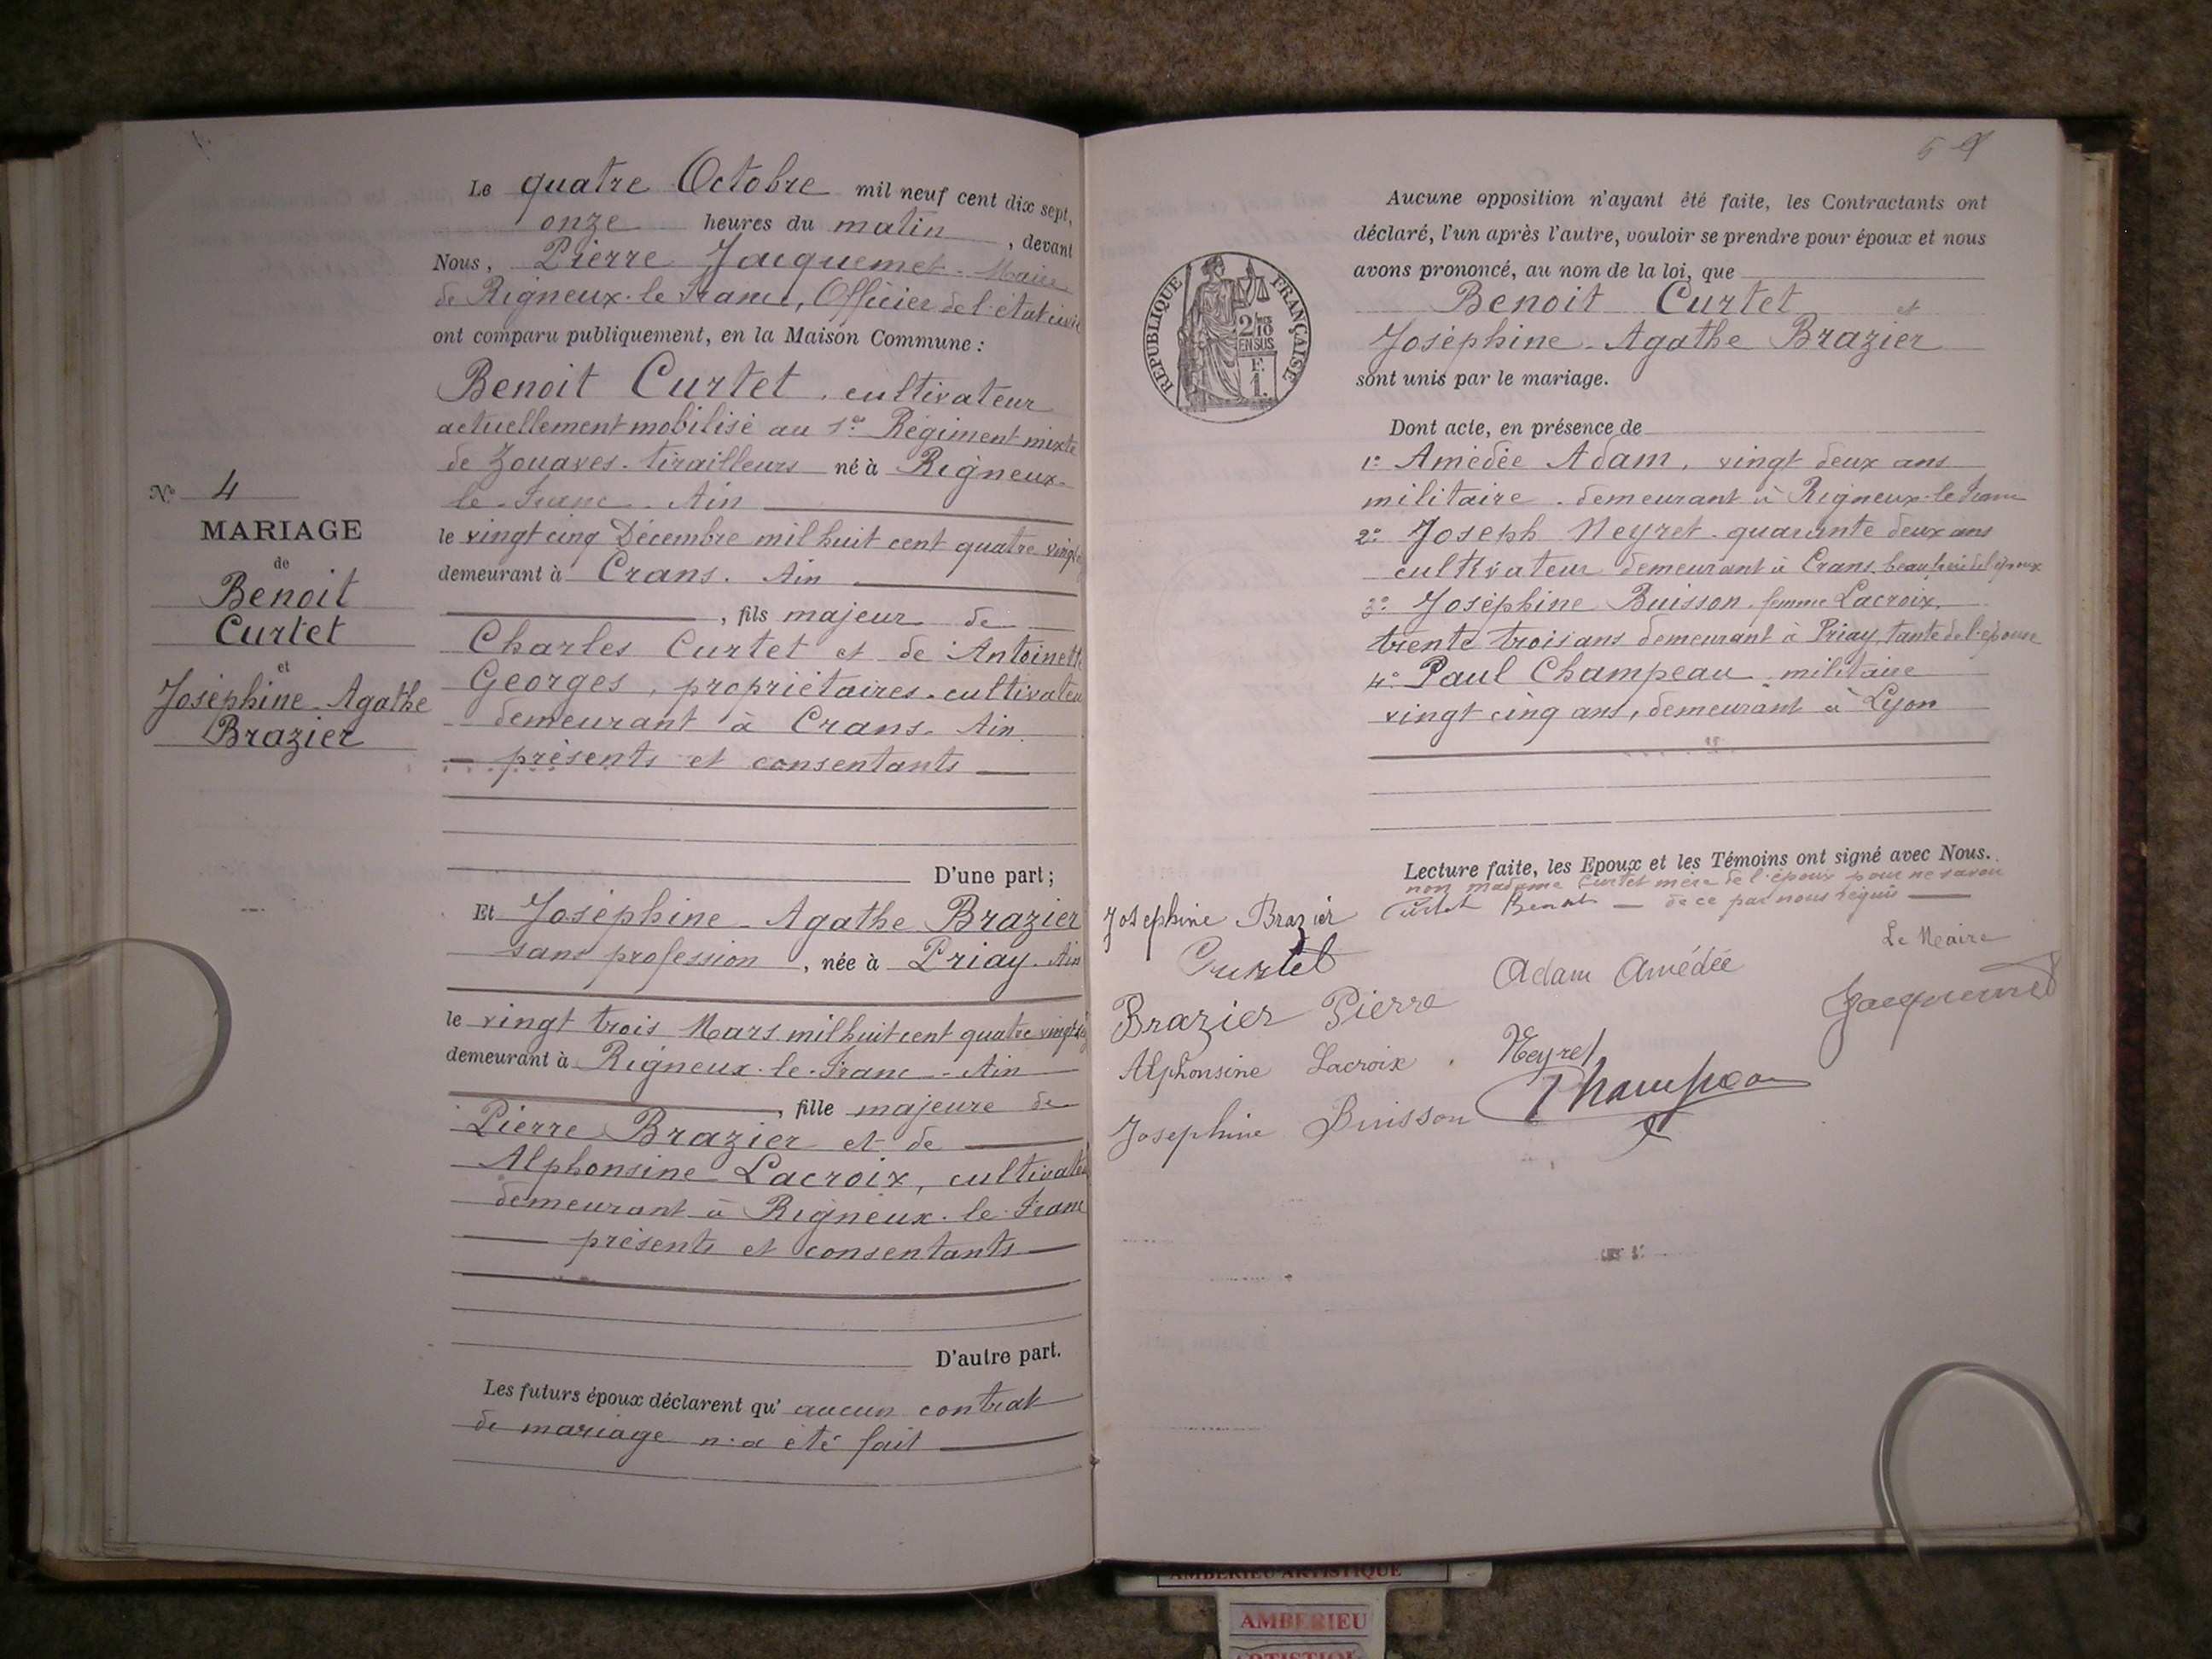 Le quatre Octobre mil neuf cent dix sept,
onze heures du matin, devant
Nous, Pierre Jacquemet Maire
de Rigneux-le-Franc, Officier de l'état civil
ont comparu publiquement, en la Maison Commune :
Benoit Curtet, cultivateur
actuellement mobilisé au 1er Régiment mixte
de Zouaves-tirailleurs né à Rigneux-
le-Franc. Ain
le vingt cinq Décembre mil huit cent quatre vingt
demeurant à Crans. Ain
, fils majeur de
Charles Curtet et de Antoinette
Georges, propriétaires-cultivateu
demeurant à Crans. Ain.
présents et consentants
D'une part ;
Nº 4
MARIAGE
de
Benoit
Curtet
et
Joséphine-Agathe
Brazier
Et Joséphine-Agathe Brazier
sans profession, née à Priay. Ain
le vingt trois Mars mil huit cent quatre vingt
demeurant à Rigneux-le-Franc - Ain
, fille majeure de
Pierre Brazier et de
Alphonsine Lacroix, cultivate
demeurant à Rigneux-le-Franc
présents et consentants
D'autre part.
Les futurs époux déclarent qu' aucun contrat
de mariage n'a été fait
Aucune opposition n'ayant été faite, les Contractants ont
déclaré, l'un après l'autre, vouloir se prendre pour époux et nous
avons prononcé, au nom de la loi, que
Benoit Curtet et
Joséphine-Agathe Brazier
sont unis par le mariage.
REPUBLIQUE FRANÇAISE
2/10
EN SUS
F.
1.
Dont acte, en présence de
1º Amédée Adam, vingt deux ans
militaire. demeurant à Rigneux-le-Franc
2º Joseph Neyret. quarante deux ans
cultivateur demeurant à Crans. beau frère de l'époux
3º Joséphine Buisson. femme Lacroix.
trente trois ans demeurant à Priay, tante de l'épouse
4º Paul Champeau militaire
vingt cinq ans, demeurant à Lyon
Lecture faite, les Epoux et les Témoins ont signé avec Nous.
non madame Curtet mère de l'époux pour ne savoir
Curtet Benoit de ce par nous requis
Josephine Brazier
Curtet
Le Maire
Adam Amédée
Jacquemet
Brazier Pierre
Alphonsine Lacroix
Neyret
Champeau
Josephine Buisson
AMBERIEU ARTISTIQUE
AMBERIEU
ARTISTIQUE